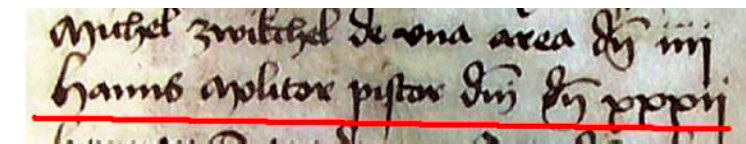 Michel zwikchel de una area dñ iiii
Hanns Molitor pistor dīm dñ xxxii